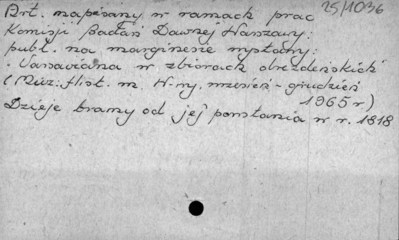 25/1036
Art. napisany w ramach prac
Komisji Badań Dawnej Warszawy:
publ. na marginesie wystawy:
"Varsaviana w zbiorach drezdeńskich"
(Muz. Hist. m. W-wy, wrzesień - grudzień
1965 r)
Dzieje bramy od jej powstania w r. 1818